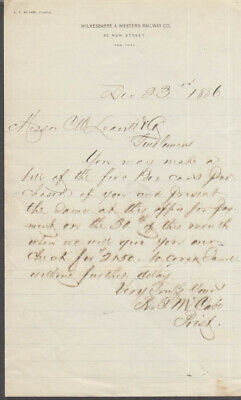 WILKESBARRE & WESTERN RAILWAY CO.
42 NEW STREET
NEW YORK
Dec 23rd 1886
Messrs C M Leavitt & Co
Gentlemen
You may make a
bill of the five Box cars pur
chased of you and present
the same at this office for pay
ment on the 30th of this month
when we will give you our
check for 2450. to cover same
without further delay
Very Truly Yours
R. F. McCabe
Prest.